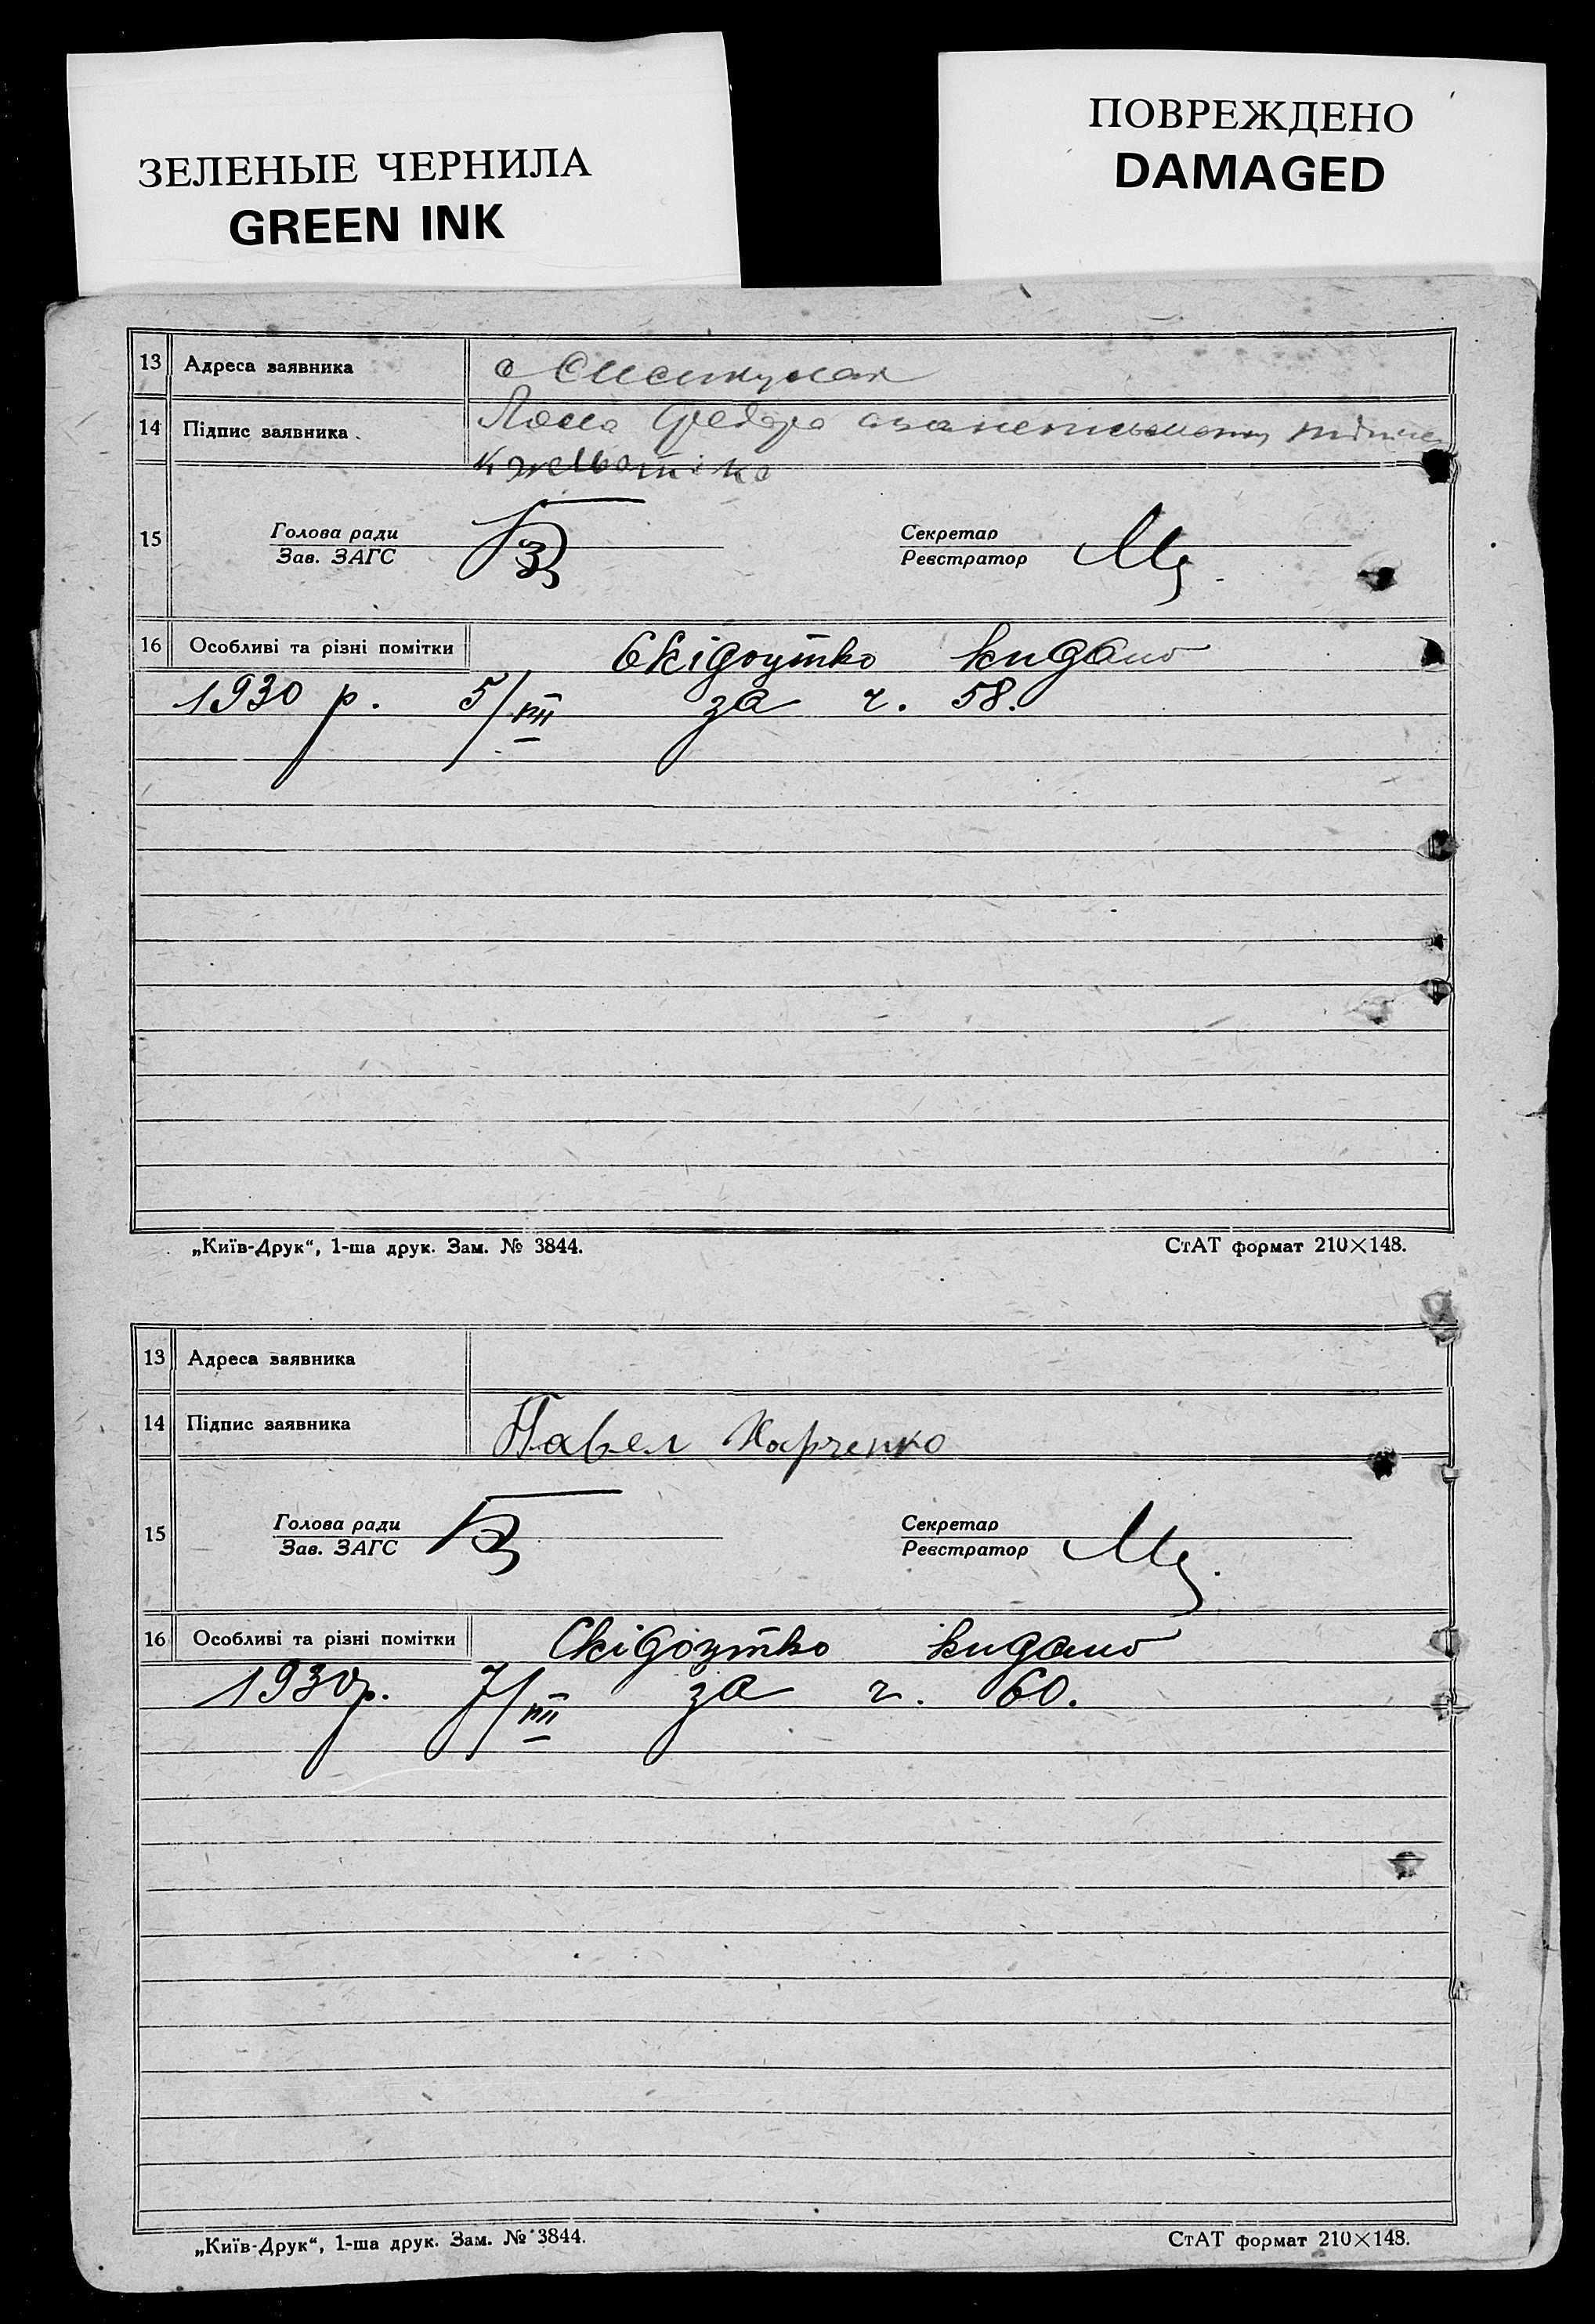 ЗЕЛЕНЫЕ ЧЕРНИЛА
GREEN INK
ПОВРЕЖДЕНО
DAMAGED
13 Адреса заявника с
14 Підпис заявника
15 Голова ради
Зав. ЗАГС
Секретар
Реєстратор
16 Особливі та різні помітки Свідоцтво видано
1930 р. 5/VIII за ч. 58.
„Київ-Друк“, 1-ша друк. Зам. № 3844. СтАТ формат 210×148.
13 Адреса заявника
14 Підпис заявника Павел Харченко
15 Голова ради
Зав. ЗАГС
Секретар
Реєстратор
16 Особливі та різні помітки Свідоцтво видано
1930р. 7/VIII за ч. 60.
„Київ-Друк“, 1-ша друк. Зам. № 3844. СтАТ формат 210×148.